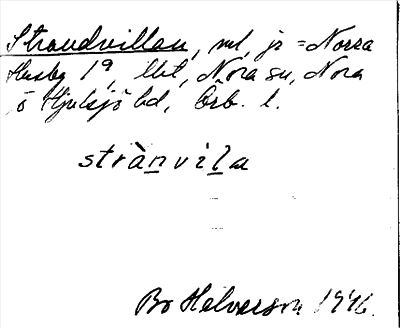 Strandvillan, ml, js = Norra
Husby 1⁹, lht, Nora sn, Nora
o Hjulsjö bd, Örb. l.
stràn̲vil̲a
Bo Halvarson 1946.